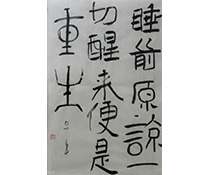 睡前原諒一
切醒来便是
重生